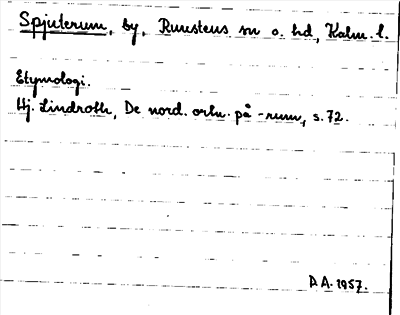 Spjuterum, by, Runstens sn o. hd, Kalm. l.
Etymologi.
Hj. Lindroth, De nord. ortn. på -rum, s. 72.
A.A. 1957.